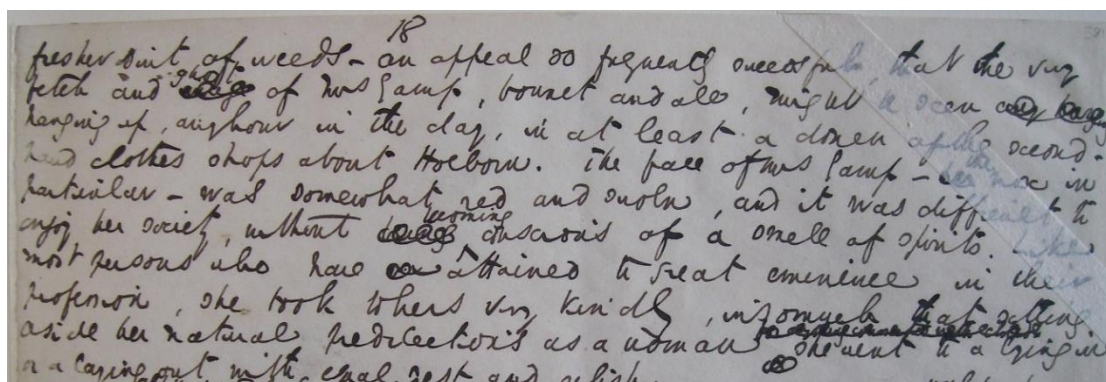 18
fresher suit of weeds - an appeal so frequently successful, that the very
fetch and ghost of Mrs Gamp, bonnet and all, might be seen
hanging up, any hour in the day, in at least a dozen of the second-
hand clothes shops about Holborn. The face of Mrs Gamp - the nose in
particular - was somewhat red and swoln, and it was difficult to
enjoy her society, without becoming conscious of a smell of spirits. Like
most persons who have attained to great eminence in their
profession, she took to hers very kindly, insomuch that setting
aside her natural predilections as a woman she went to a lying in
or a laying out with equal zest and relish.